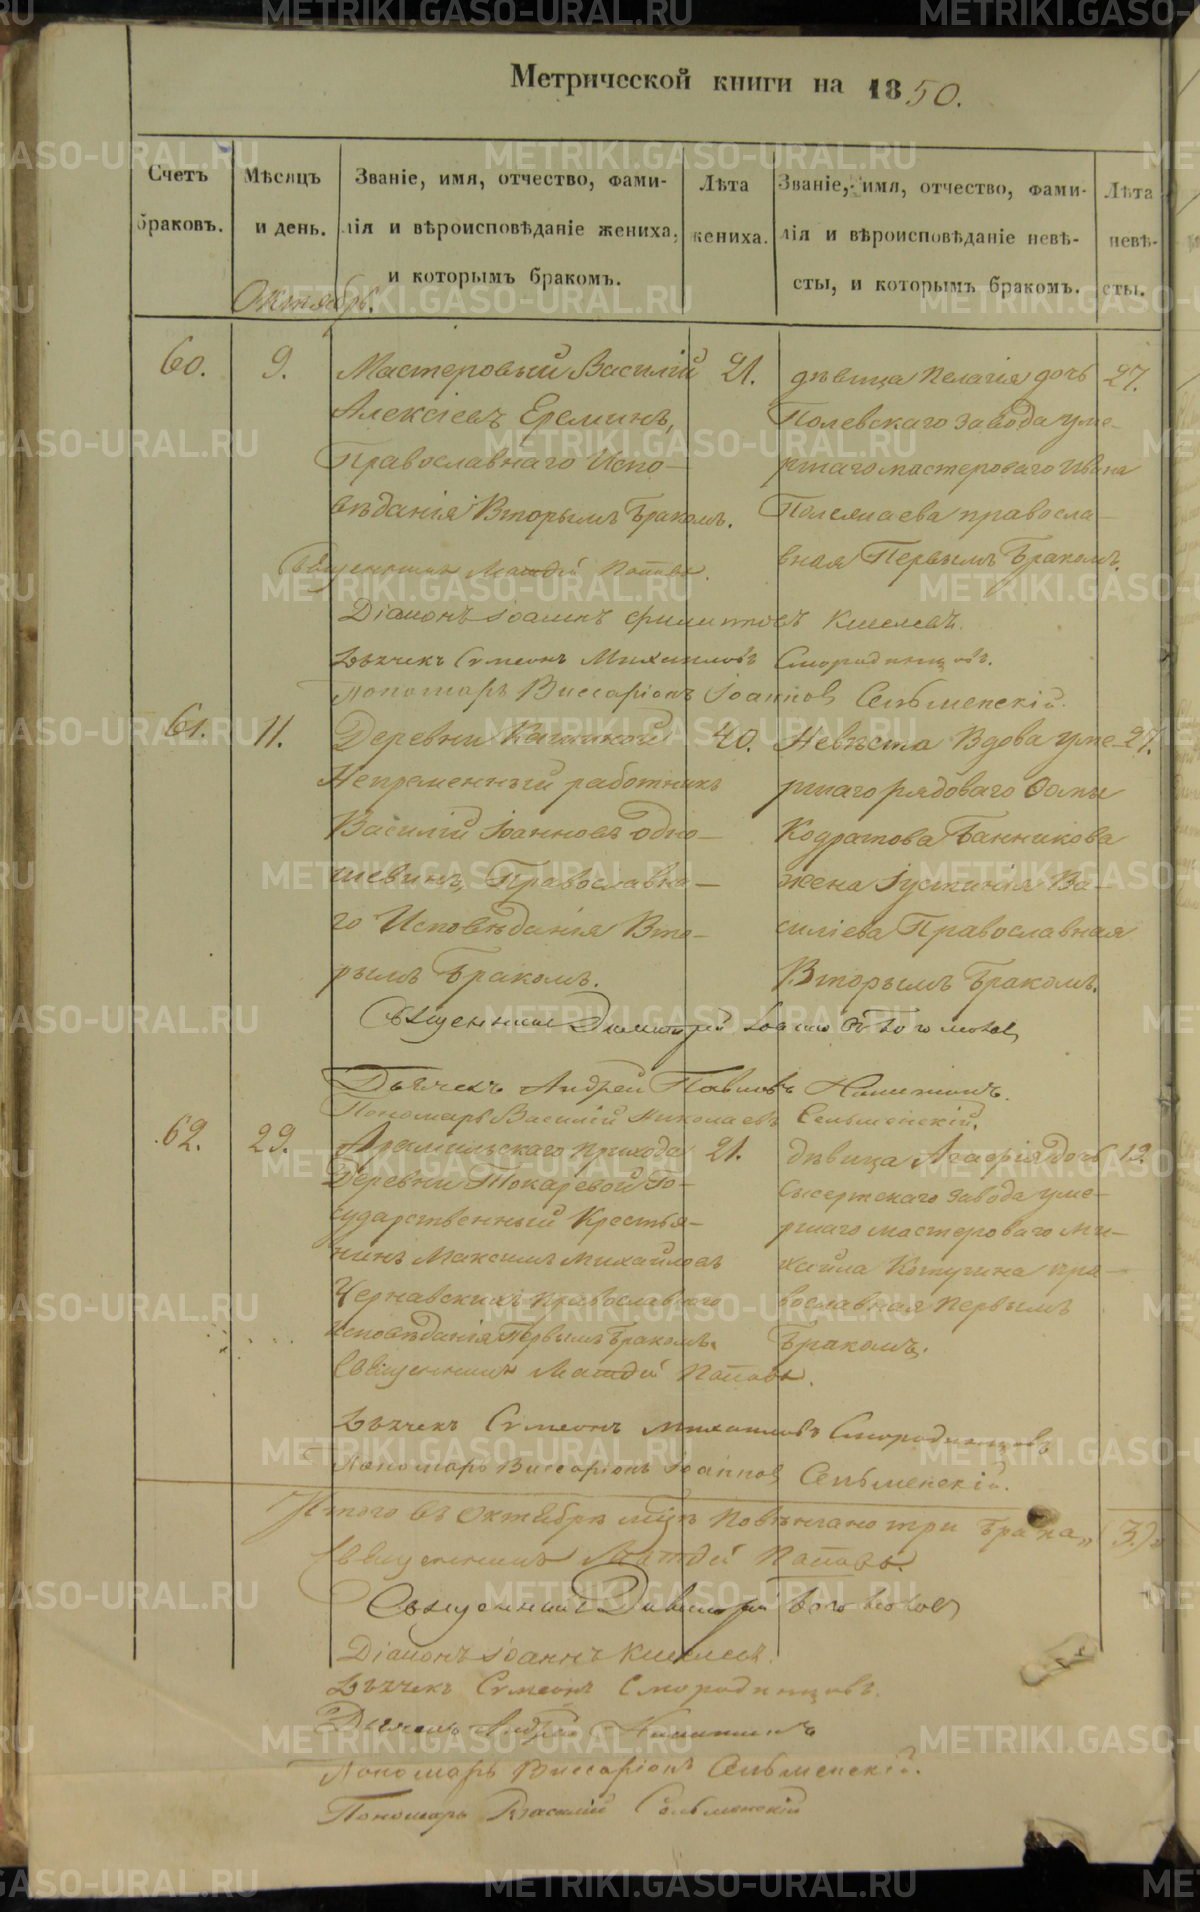 Метрической книги на 1850.
Счетъ браковъ.
Мѣсяцъ и день.
Званіе, имя, отчество, фами-
лія и вѣроисповѣданіе жениха,
и которымъ бракомъ.
Лѣта жениха.
Званіе, имя, отчество, фами-
лія и вѣроисповѣданіе невѣ-
сты, и которымъ бракомъ.
Лѣта невѣ-
сты.
Октябрь.
60.
9.
Мастеровый Василій
Алексіевъ Ереминъ,
Православнаго Испо-
вѣданія Вторымъ Бракомъ.
21.
дѣвица Пелагія дочь
Полевскаго завода уме-
ршаго мастероваго Ивана
правосла-
вная Первымъ Бракомъ.
27.
Священникъ Матфій Поповъ.
Діаконъ Іоаннъ Филиповъ Киселевъ.
Дьячекъ Сѵмеонъ Михаиловъ Смородинцовъ.
Пономарь Виссаріонъ Іоанновъ Сельменскій.
61.
11.
Деревни Кашиной
Непременный работникъ
Василій Іоанновъ Одно-
шевинъ, Православна-
го Исповѣданія Вто-
рымъ Бракомъ.
40.
Невѣста Вдова уме-
ршаго рядоваго Ѳомы
Кодратова Банникова
жена Іустинія Ва-
силіева Православная
Вторымъ Бракомъ.
27.
Священникъ Димитрій Боголюбовъ
Дьячекъ Андрей Павловъ
Пономарь Василій Николаевъ Сельменскій.
62.
29.
Арамильскаго прихода
Деревни Токаревой Го-
сударственный Крестья-
нинъ Максимъ Михайловъ
Чернавскихъ православнаго
исповѣданія Первымъ Бракомъ.
21.
дѣвица Агафія дочь
Сысертскаго завода уме-
ршаго мастероваго Ми-
хайла Котугина пра-
вославная Первымъ
Бракомъ.
19.
Священникъ Матфій Поповъ.
Дьячекъ Сѵмеонъ Михаиловъ Смородинцовъ
Пономарь Виссаріонъ Іоанновъ Сельменскій.
Итого въ Октябрѣ мцѣ Повѣнчано три брака, (3.)
Священникъ Матфій Поповъ.
Священникъ Димитрій Боголюбовъ
Діаконъ Іоаннъ Киселевъ.
Дьячекъ Сѵмеонъ Смородинцовъ.
Дьячекъ Андрей
Пономарь Виссаріонъ Сельменскій.
Пономарь Василій Сельменскій
METRIKI.GASO-URAL.RU